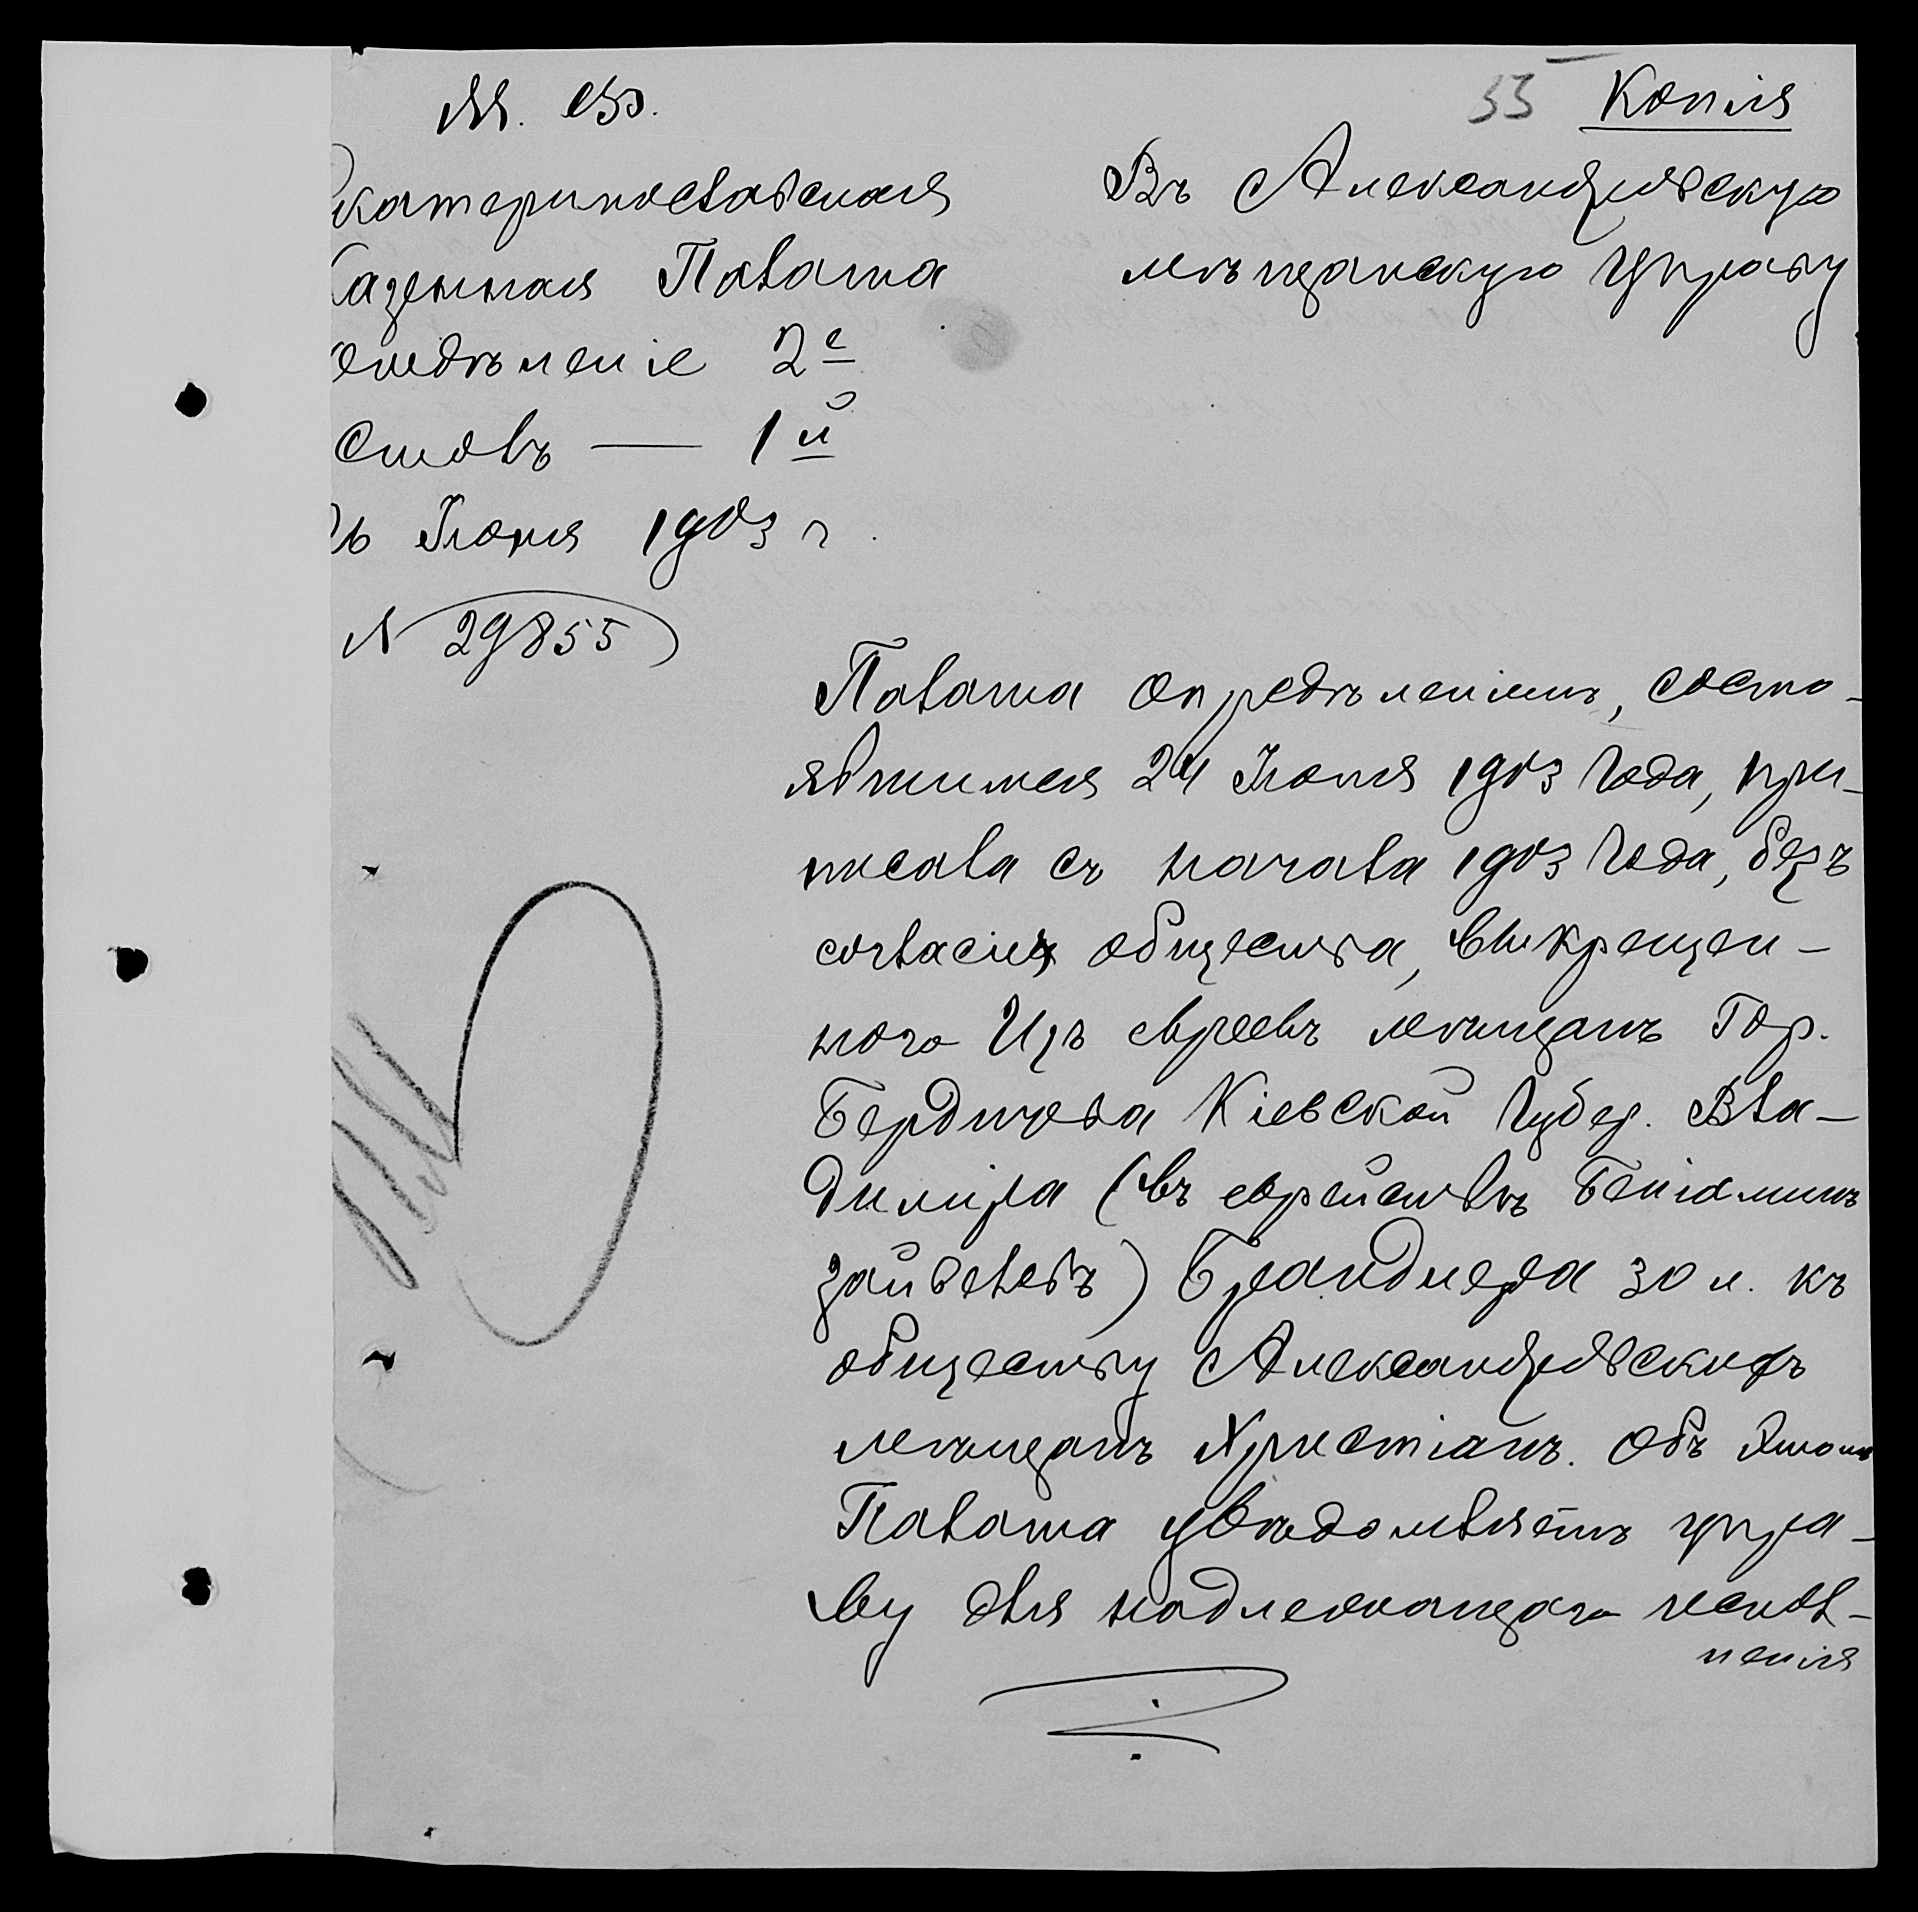 М. Ф.
33 Копія
Екатеринославская
Казенная Палата
Отдѣленіе 2е
Столъ — 1й
Іюня 1903 г.
№ 29855
Въ Александровскую
мѣщанскую Управу
Палата опредѣленіемъ, состо-
явшимся 24 Іюня 1903 года, при-
писала съ начала 1903 года, безъ
согласія общества, выкрещен-
ного изъ евреевъ мѣщанъ гор.
Бердичева Кіевской губер. Вла-
диміра (въ еврействѣ Беніаминъ
Зайвелевъ) Брандмера 30 л. къ
обществу Александровскихъ
мѣщанъ Христіанъ. Объ этомъ
Палата увѣдомляетъ упра-
ву для надлежащаго испол-
ненія